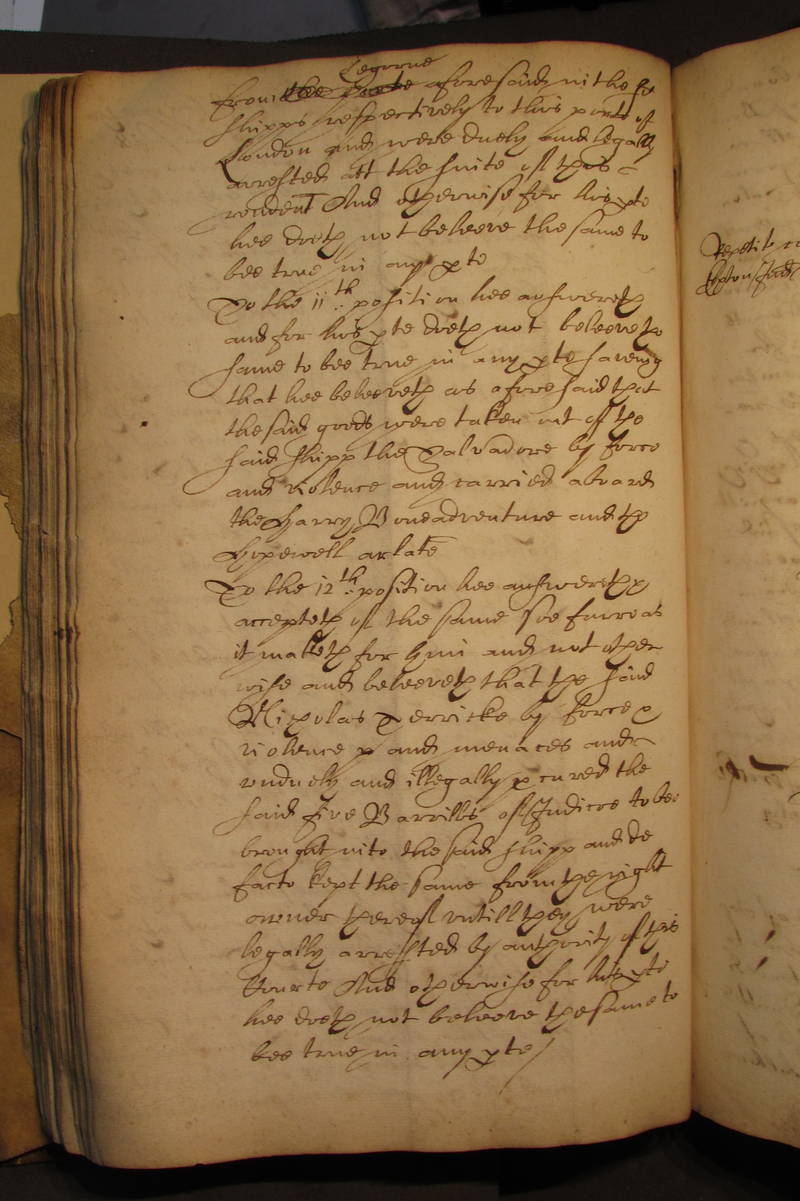 Legorne
from the Porte aforesaid in the sd
shipps respectively to this porte of
London and were duely and legally
arrested att the suite of this =
rendent And otherwise for his pte
hee doeth not beleeve the same to
bee true in any pte
To the 11th: position hee answereth
and for his pte doeth not beleeve the
same to bee true in any pte saveing
that hee beleeveth as aforesaid that
the said goods were taken out of the
said shipp the Salvadore by force
and violence and carried aboard
the Harry Boneadventure and the
Hopewell arlate
To the 12th: position hee answereth
accepteth of the same soe farre as
it maketh for him and not other
wise and beleeveth that the said
Nicholas Terricke by force
violence and menaces and
unduely and illegally pcured the
said five Barrills of Indicoe to bee
brought into the said shipp and de
facto kept the same from the right
owner thereof untill they were
legally arrested by authority of this
Courte And otherwise for his pte
hee doeth not beleeve the same to
bee true in any pte /
Repetit